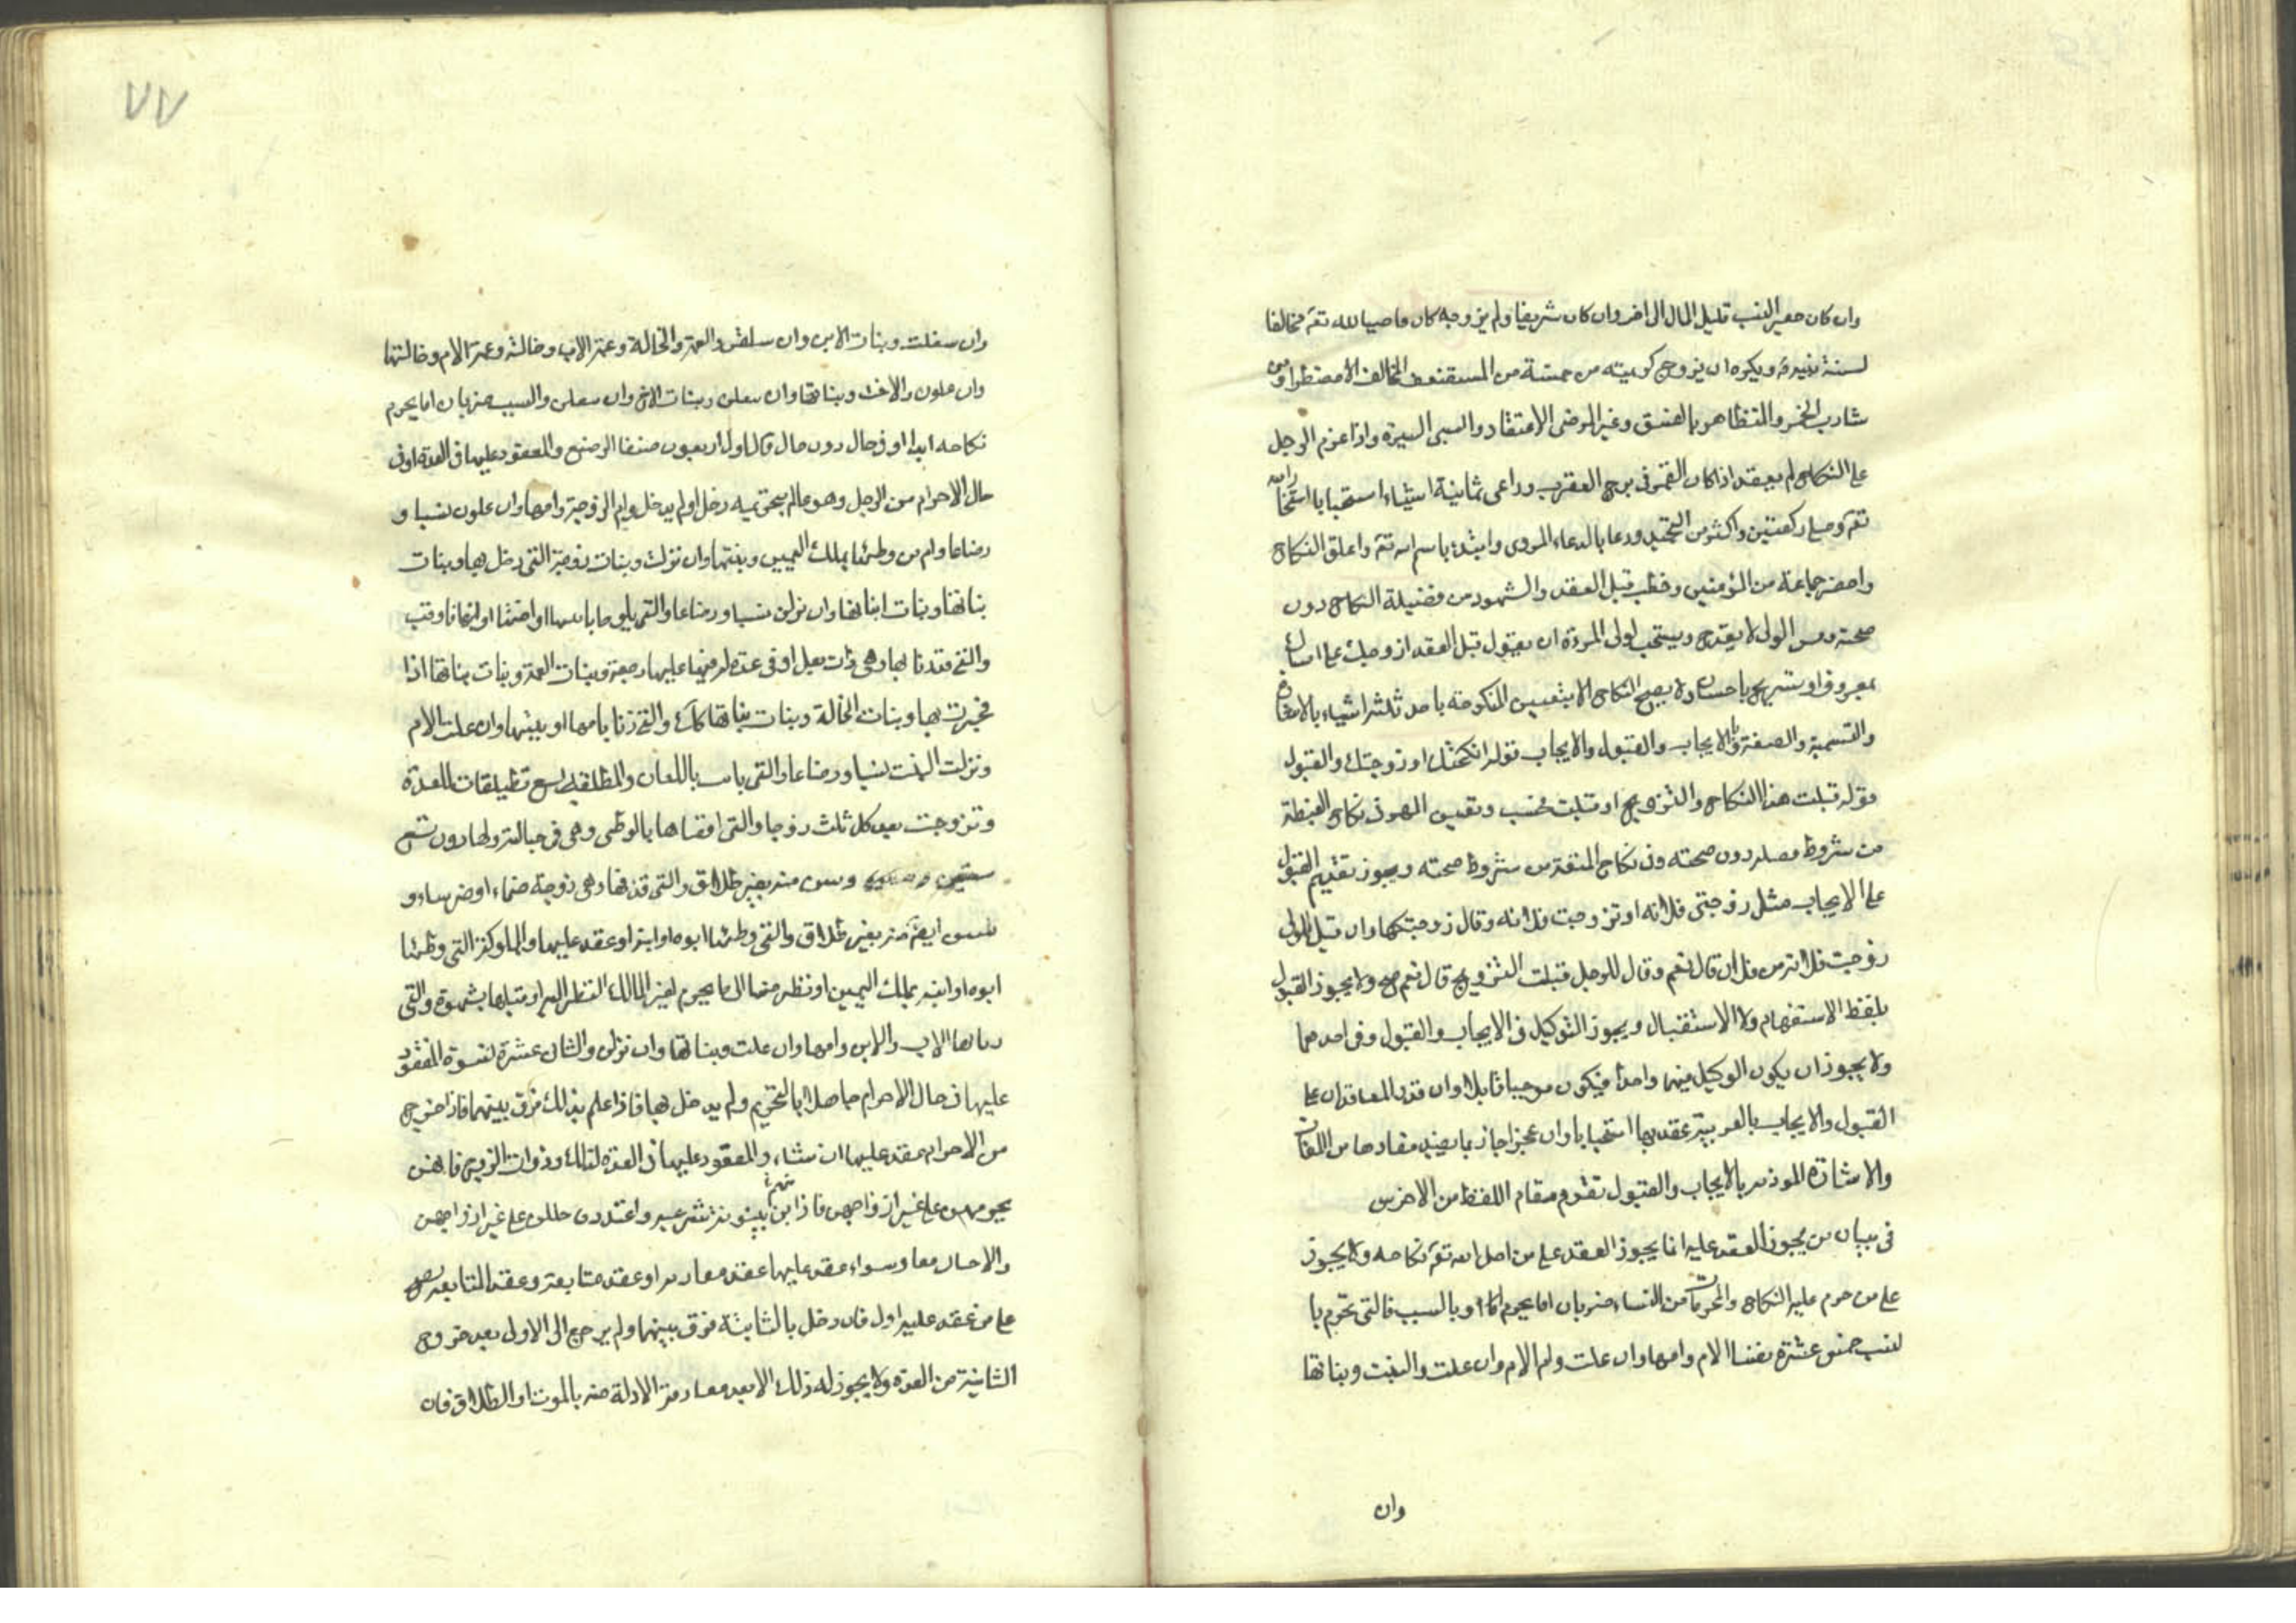 وان كان حقير النسب قليل المال الى اخر وان كان شريفا ولم يزوجه كان عاصيا لله تعٰ مخالفا
لسنة نبيه ويكره ان يزوج كريمته من خمسة من المستضعف المخالف الا مضطرا ومن
شارب الخمر والمتظاهر بالفسق وغير المرضى الاعتقاد والسيى السيرة واذا عزم الرجل
على النكاح لم يعقد اذا كان القمر فى برج العقرب وراعى ثمانية اشياء استحبابا استخار الله
تعٰ وصلى ركعتين واكثر من التحميد ودعا بالدعاء المروى وابتدء باسم الله تعٰ واعلن النكاح
واحضر جماعة من المؤمنين وخطب قبل العقد والشهود من فضيلة النكاح دون
صحته وفسق الولى لا يقدح ويستحب لولى المرءة ان يقول قبل العقد ازوجك على امساك
بمعروف او تسريح باحسان ولا يصح النكاح الا بتعيين المنكوحة باحد ثلثة اشياء بالاشارة
والتسمية والصفة وبالايجاب والقبول والايجاب قوله انكحتك او زوجتك والقبول
قوله قبلت هذا النكاح والتزويج او قبلت فحسب وتعيين المهر فى نكاح الغبطة
من شروط فضله دون صحته وفى نكاح المتعة من شروط صحته ويجوز تقديم القبول
على الايجاب مثل زوجنى فلانه او تزوجت فلانه وقال زوجتكها وان قيل للولى
زوجت فلانة من فلان قال نعم وقال للرجل قبلت التزويج قال نعم صح ولا يجوز القبول
بلفظ الاستفهام ولا الاستقبال ويجوز التوكيل فى الايجاب والقبول وفى احدهما
ولا يجوز ان يكون الوكيل فيهما واحدا فيكون موجبا قابلا وان قدر المتعاقدان على
القبول والايجاب بالعربية عقد بها استحبابا وان عجز اجاز بما يفيد مفادها من اللغات
والاشارة الموذنة بالايجاب والقبول تقوم مقام اللفظ من الاخرس
فى بيان من يجوز العقد عليه انما يجوز العقد على من احل الله تعٰ نكاحه ولا يجوز
على من حرم عليه النكاح والمحرمات من النساء ضربان اما يحرم او بالسبب فالتى تحرم با
لنسب خمس عشرة نفسا الام وامها وان علت وام الام وان علت والبنت وبناتها
وان
٧٧
وان سفلت وبنات الابن وان سفلن والعمة والخالة وعمة الاب وخالته وعمة الام وخالتها
وان علون والاخت وبناتها وان سفلن وبنات الاخ وان سفلن والسبب ضربان اما يحرم
نكاحه ابدا او فى حال دون حال فالاول اربعون صنفا الرضيع والمعقود عليها فى العدة او فى
حال الاحرام من الرجل وهو عالم بتحريمه دخل او لم يدخل وام الزوجة وامها وان علون نسبا و
رضاعا وام من وطئها بملك اليمين وبنتها وان نزلت وبنات زوجة التى دخل بها وبنات
بناتها وبنات ابنائها وان نزلن نسبا ورضاعا والتى يلوط بابنها او اخيها او ابيها فاوقب
والتى قد زنا بها وهى ذات بعل او فى عدة له فيها عليها رجعة وبنات العمة وبنات بناتها اذا
فجرت بها وبنات الخالة وبنات بناتها كك والتى زنا بامها او ببنتها وان علت الام
ونزلت البنت نسبا ورضاعا والتى بانت باللعان والمطلقة تسع تطليقات للعدة
وتزوجت بعد كل ثلث زوجا والتى افضاها بالوطى وهى فى حبالته ولها دون تسع
سنين وبين منه بغير طلاق والتى قذفها وهى زوجة صماء او خرساء و
تبين ايضا منه بغير طلاق والتى وطئها ابوه او ابنه او عقد عليها والمملوكة التى وطئها
ابوه او ابنه بملك اليمين او نظر منها الى ما يحرم لغير المالك النظر اليه او قبلها بشهوة والتى
زنا بها الاب والابن وامها وان علت وبناتها وان نزلن والثانى عشرة نسوة المعقود
عليها فى حال الاحرام جاهلا بالتحريم ولم يدخل بها فاذا علم بذلك فرق بينهما فاذا خرج
من الاحرام عقد عليها ان شاء والمعقود عليها فى العدة كذلك وذوات الزوج فانهن
يحرمهن على غير ازواجهن فاذا بن ببينونة شرعية واعتددن حللن على غير ازواجهن
والاختان معا وسواء عقد عليهما عقد مقارنة او عقد متابعة وعقد المتابعة يصح
على من عقد عليه اول فان دخل بالثانية فرق بينهما ولم يرجع الى الاول بعد خروج
الثانية من العدة ولا يجوز له ذلك الا بعد مفارقة الاولة منه بالموت او الطلاق فان